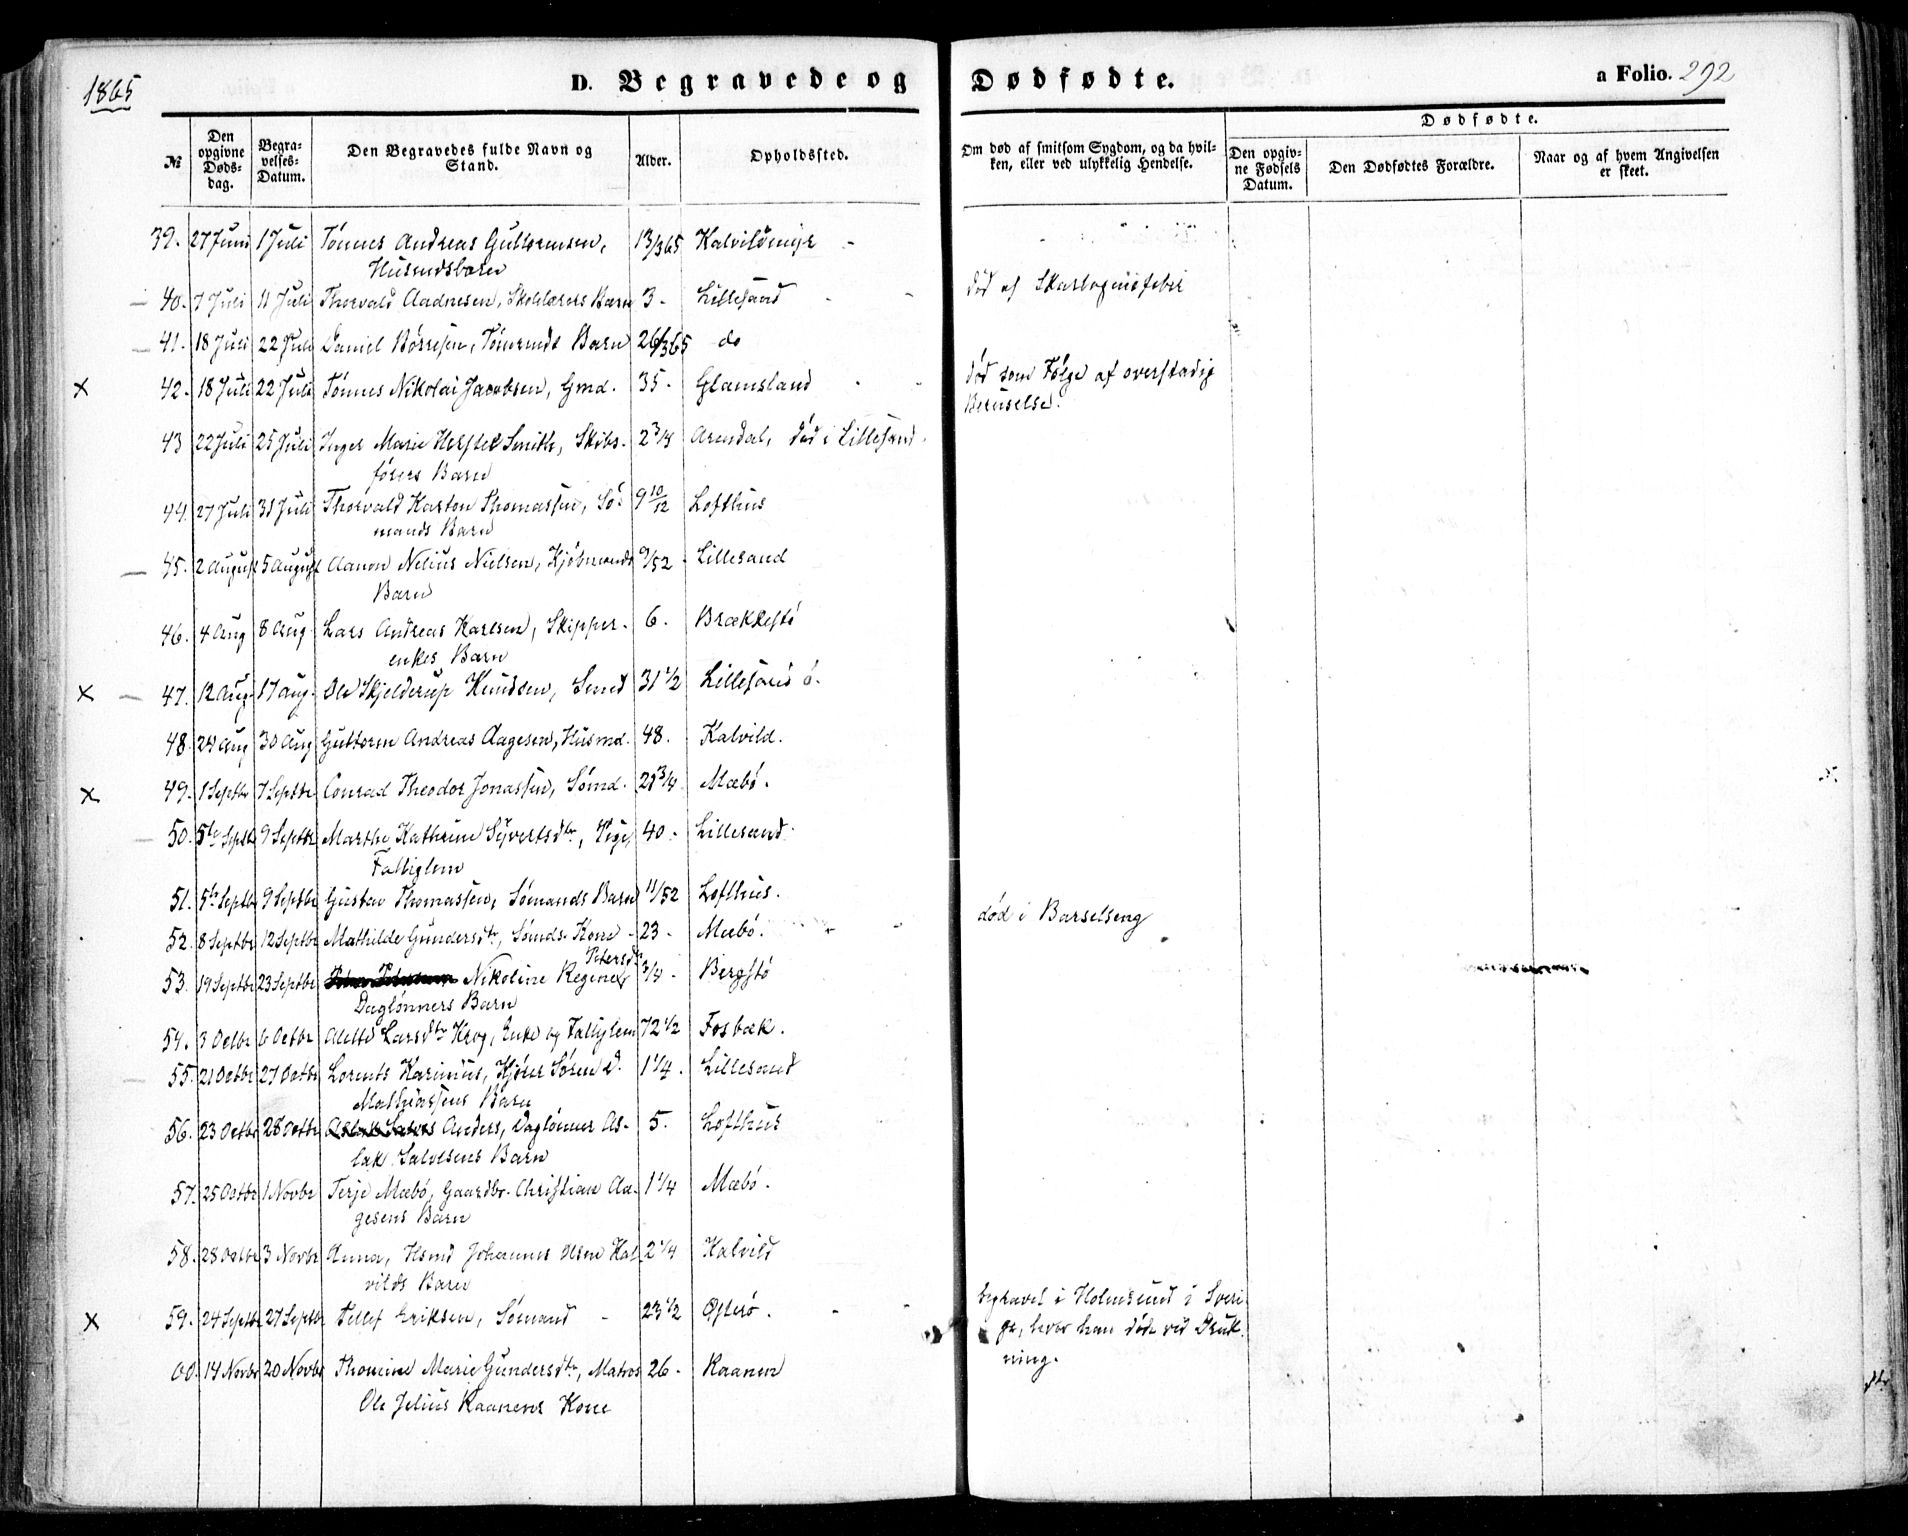 1865
D. Begravede og Dødfødte.
a Folio. 292
№
Den opgivne Døds-dag.
Begra-velses-Datum.
Den Begravedes fulde Navn og Stand.
Alder.
Opholdssted.
Om død af smitsom Sygdom, og da hvil-ken, eller ved ulykkelig Hendelse.
Dødfødte.
Den opgiv-ne Fødsels Datum.
Den Dødfødtes Forældre.
Naar og af hvem Angivelsen er skeet.
39. 27 Juni 1 Juli Tønnes Andreas Guttormsen, 13/365 Kalvildmyr
Husmdsbarn
40. 7 Juli 11 Juli Thorvald Aadnesen, Skolelærers Barn 3 - Lillesand død af Skarlagensfeber
41. 18 Juli 22 Juli Daniel Børresen, Tømrmds Barn 26/365 do
42. 18 Juli 22 Juli Tønnes Nikolai Jacobsen, Gmd. 35 - Glamsland død som Følge af overstadig
Beruselse.
43 22 Juli 25 Juli Inger Marie Smith, Skibs- 2 3/4 Arendal, død i Lillesand.
førers Barn
44. 27 Juli 31 Juli Thorvald Karton Thomassen, Sø- 9 10/12 Lofthus
mands Barn
45. 2 August 5 August Aanon Nelius Nielsen, Kjøbmands 9/52 - Lillesand
Barn
46. 4 Aug 8 Aug Lars Andreas Karlsen, Skipper- 6. Brækkestø
enkes Barn
x 47. 12 Aug 17 Aug. Ole Skjelderup Knudsen, Smed 31 1/2 Lillesand ö.
48. 24 Aug 30 Aug Guttorm Andreas Aagesen, Husmd. 48. Kalvild.
x 49. 1 Septbr 7 Septbr Conrad Theodor Jonassen, Sømd. 21 3/4 Mæbø.
50. 5te Septb 9 Septbr Marthe Kathrine Syvertsdtr, Pige, 40 - Lillesand.
Fattiglem
51. 5te Septbr 9 Septbr Gustav Thomassen, Sømands Barn 11/52 Lofthus.
52. 8 Septbr 12 Septbr Mathilde Gundersdtr, Sømds. Kone - 23 - Mæbø. død i Barselseng
Petersdtr
53. 19 Septbr 23 Septbr Nikoline Regine, 3/4 - Bergstø
Daglønners Barn
54. 3 Octbr 6 Octbr Alette Larsdtr Krog, Enke og Fattiglem 72 1/2 Fosbæk.
55. 21 Octbr 27 Octbr Lorents Karinius, Søren D. 1 1/4. Lillesand
Mathiassens Barn
56. 23 Octbr 28 Octbr Anders, Daglønner As- 5. Lofthus
lak Salvesens Barn
57. 25 Octbr 1 Novbr Terje Mæbø, Gaardbr. Christian Aa- 1 1/4 Mæbø.
gesens Barn
58. 28 Octbr 3 Novbr Anna, Hsmd Johannes Olsen Kal- 2 1/4 Kalvild
vilds Barn
x 59. 24 Septbr 27 Septbr Tellef Eriksen, Sømand - 23 1/2 begravet i Holmsund i Sveri-
ge, hvor han døde ved Druk-
ning.
60. 14 Novbr 20 Novbr Thomine Marie Gundersdtr, Matros 26 - Kaanen
Ole Jelius Kaanens Kone